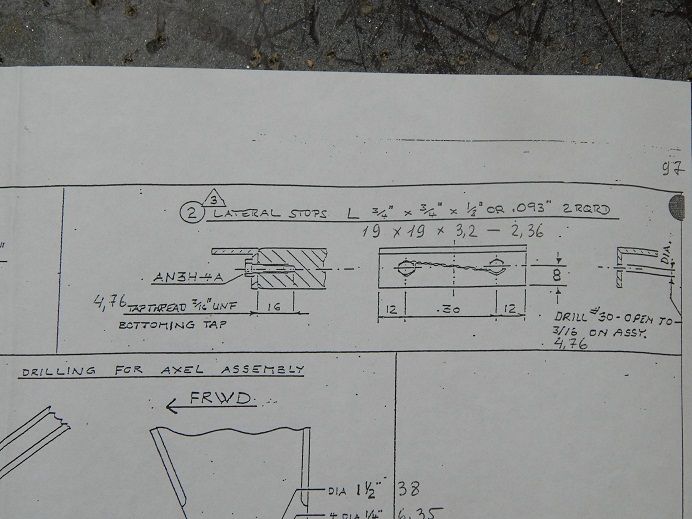 97
3
2 LATERAL STOPS L 3/4" x 3/4" x 1/8" OR .093" 2 RQRD
19 x 19 x 3,2 – 2,36
AN3H-4A
4,76 TAP THREAD 3/16" UNF
BOTTOMING TAP
16
12
30
12
8
DIA.
DRILL #30 - OPEN TO
3/16 ON ASSY.
4,76
DRILLING FOR AXEL ASSEMBLY
FRWD.
DIA 1 1/2" 38
4 DIA 1/4" 6,35